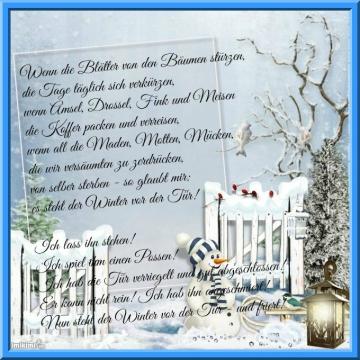 Wenn die Blätter von den Bäumen stürzen,
die Tage täglich sich verkürzen,
wenn Amsel, Drossel, Fink und Meisen
die Koffer packen und verreisen,
wenn all die Maden, Motten, Mücken,
die wir versäumten zu zerdrücken,
von selber sterben - so glaubt mir:
es steht der Winter vor der Tür!
Ich lass ihn stehen!
Ich spiel ihm einen Possen!
Ich hab die Tür verriegelt und gut abgeschlossen!
Er kann nicht rein! Ich hab ihn angeschmiert!
Nun steht der Winter vor der Tür - und friert!